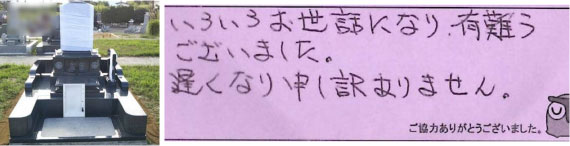 いろいろお世話になり、有難う
ございました。
遅くなり申し訳ありません。
ご協力ありがとうございました。